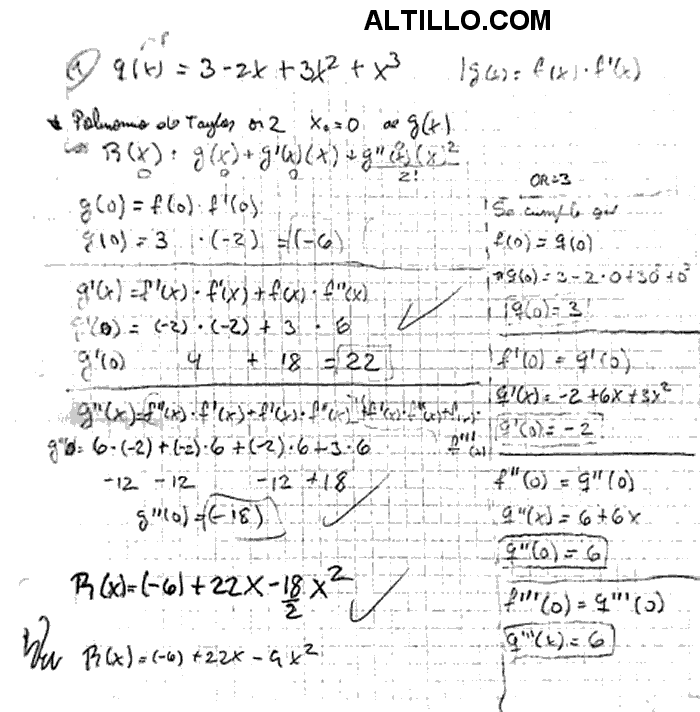 ALTILLO.COM
1) q(x) = 3 - 2x + 3x² + x³
g(x) = f(x) · f'(x)
Polinomio de Taylor or 2 x₀ = 0 de g(x)
P₂(x) = g(0) + g'(0)(x) + g''(0)(x)²
2!
g(0) = f(0) · f'(0)
g(0) = 3 · (-2) = (-6)
g'(x) = f'(x) · f'(x) + f(x) · f''(x)
g'(0) = (-2) · (-2) + 3 · 6
g'(0) 4 + 18 = 22
g''(x) = f''(x) · f'(x) + f'(x) · f''(x) + f'(x) · f''(x) + f(x) ·
f'''(x)
g''0 = 6 · (-2) + (-2) · 6 + (-2) · 6 + 3 · 6
-12 -12 -12 +18
g''(0) = (-18)
P₂(x) = (-6) + 22x - 18/2 x²
P₂(x) = (-6) + 22x - 9x²
OR = 3
Se cumple que
f(0) = q(0)
q(0) = 3 - 2 · 0 + 30² + 0³
q(0) = 3
f'(0) = q'(0)
q'(x) = -2 + 6x + 3x²
q'(0) = -2
f''(0) = q''(0)
q''(x) = 6 + 6x
q''(0) = 6
f'''(0) = q'''(0)
q'''(x) = 6